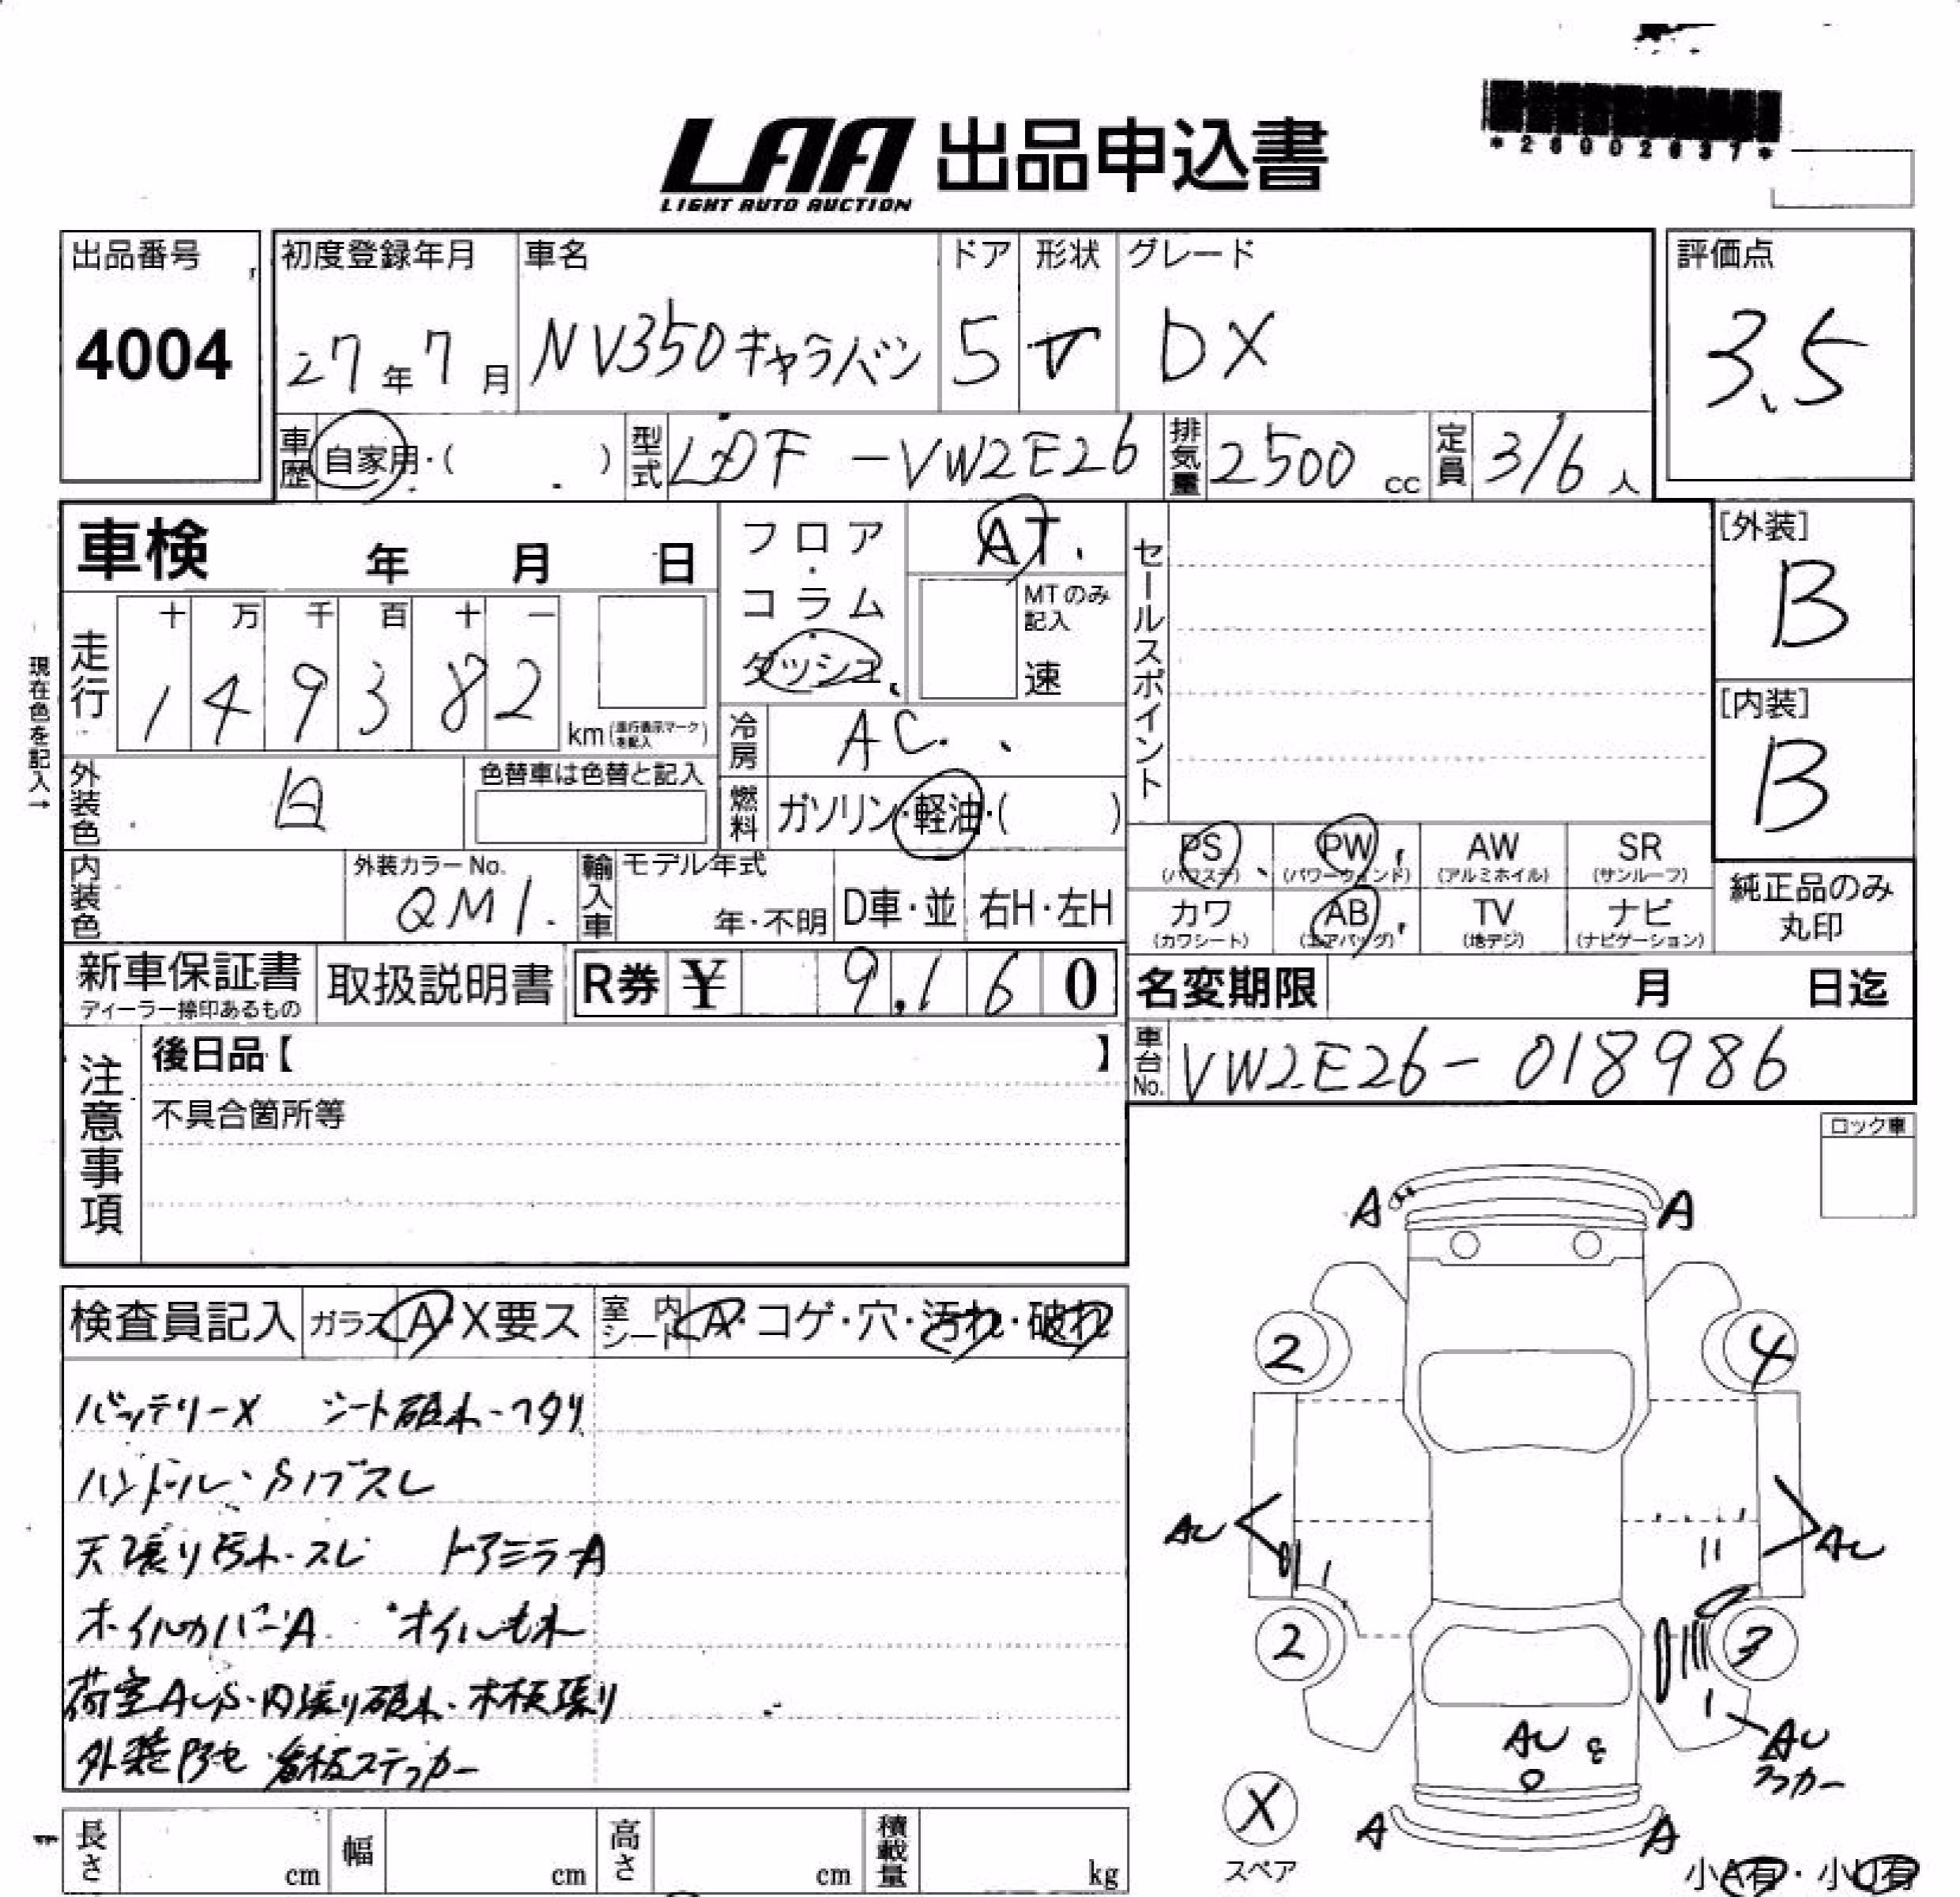 *26002637*
LAA 出品申込書
LIGHT AUTO AUCTION
出品番号 初度登録年月 車名 ドア 形状 グレード 評価点
4004 27年7月 NV350キャラバン 5 V DX 3.5
車歴 自家用・( ) 型式 LDF-VW2E26 排気量 2500 cc 定員 3/6 人
車検 年 月 日 フロア・コラム ダッシュ AT
MTのみ記入 速
セールスポイント
[外装]
B
[内装]
B
現在色を記入→
走行 十 万 千 百 十 一
1 4 9 3 8 2 km(走行表示マークを記入)
冷房 AC
外装色 白 色替車は色替と記入
燃料 ガソリン・軽油・( )
内装色 外装カラーNo. QM1 輸入車 モデル年式 年・不明 D車・並 右H・左H
PS (パワステ) PW (パワーウィンド) AW (アルミホイル) SR (サンルーフ)
カワ (カワシート) AB (エアバッグ) TV (地デジ) ナビ (ナビゲーション)
純正品のみ丸印
新車保証書 ディーラー捺印あるもの 取扱説明書 R券 ¥ 9,160
名変期限 月 日迄
車台No. VW2E26-018986
注意事項
後日品【 】
不具合箇所等
ロック車
検査員記入 ガラス A・X要ス 室内シート A・コゲ・穴・汚れ・破れ
バッテリーX シート破れ・ヘタリ
ハンドル・Sノブスレ
天張り汚れ・スレ ドアミラーA
ホイルカバーA オイルもれ
荷室AUS・内張り破れ・木板張り
外装 看板ステッカー
A A
2 4
AU AU
2 3
AU
AU
X
スペア
A A
小A有・小U有
長さ cm 幅 cm 高さ cm 積載量 kg